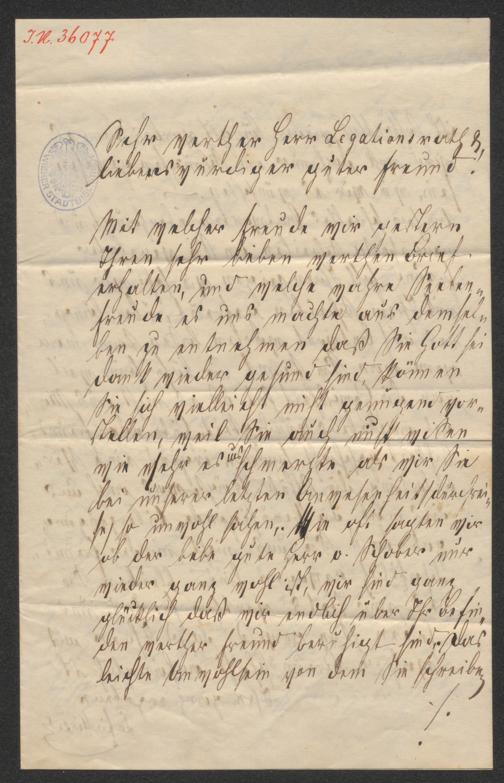 I.N. 36077
Sehr werther Herr Legationsrath &
liebenswürdiger guter Freund!
Mit welcher Freude wir gestern
Ihren sehr lieben werthen Brief
erhalten, und welche wahre Seelen-
freude es uns machte aus demsel-
ben zu entnehmen daß Sie Gott sei
dank wieder gesund sind, können
Sie sich vielleicht nicht genügend vor-
stellen, weil Sie auch nicht wissen
wie sehr es uns schmerzte als wir Sie
bei unserer letzten Anwesenheit (durchrei-
se) so unwohl sahen. Wie oft sagten wir
ob der liebe gute Herr v. Schober nur
wieder ganz wohl ist, wir sind ganz
glücklich daß wir endlich über Ihr Befin-
den werther Freund beruhigt sind, das
leichte Unwohlsein von dem Sie schreiben
./.